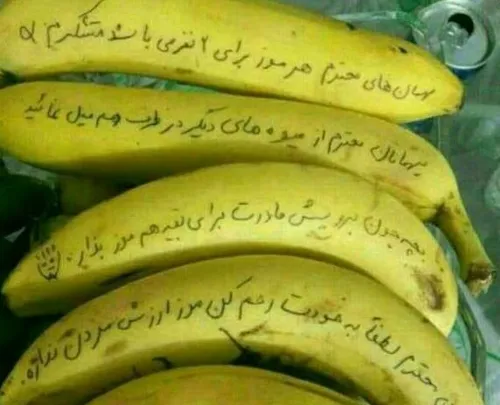 مهمان‌های محترم هر موز برای ۲ نفری باشد متشکرم
میهمانان محترم از میوه های دیگر در ظرف هم میل نمائید
بچه جون برو پیش مادرت برای بقیه هم موز بذار
محترم لطفاً به خودت رحم کن موز ارزش مردن نداره